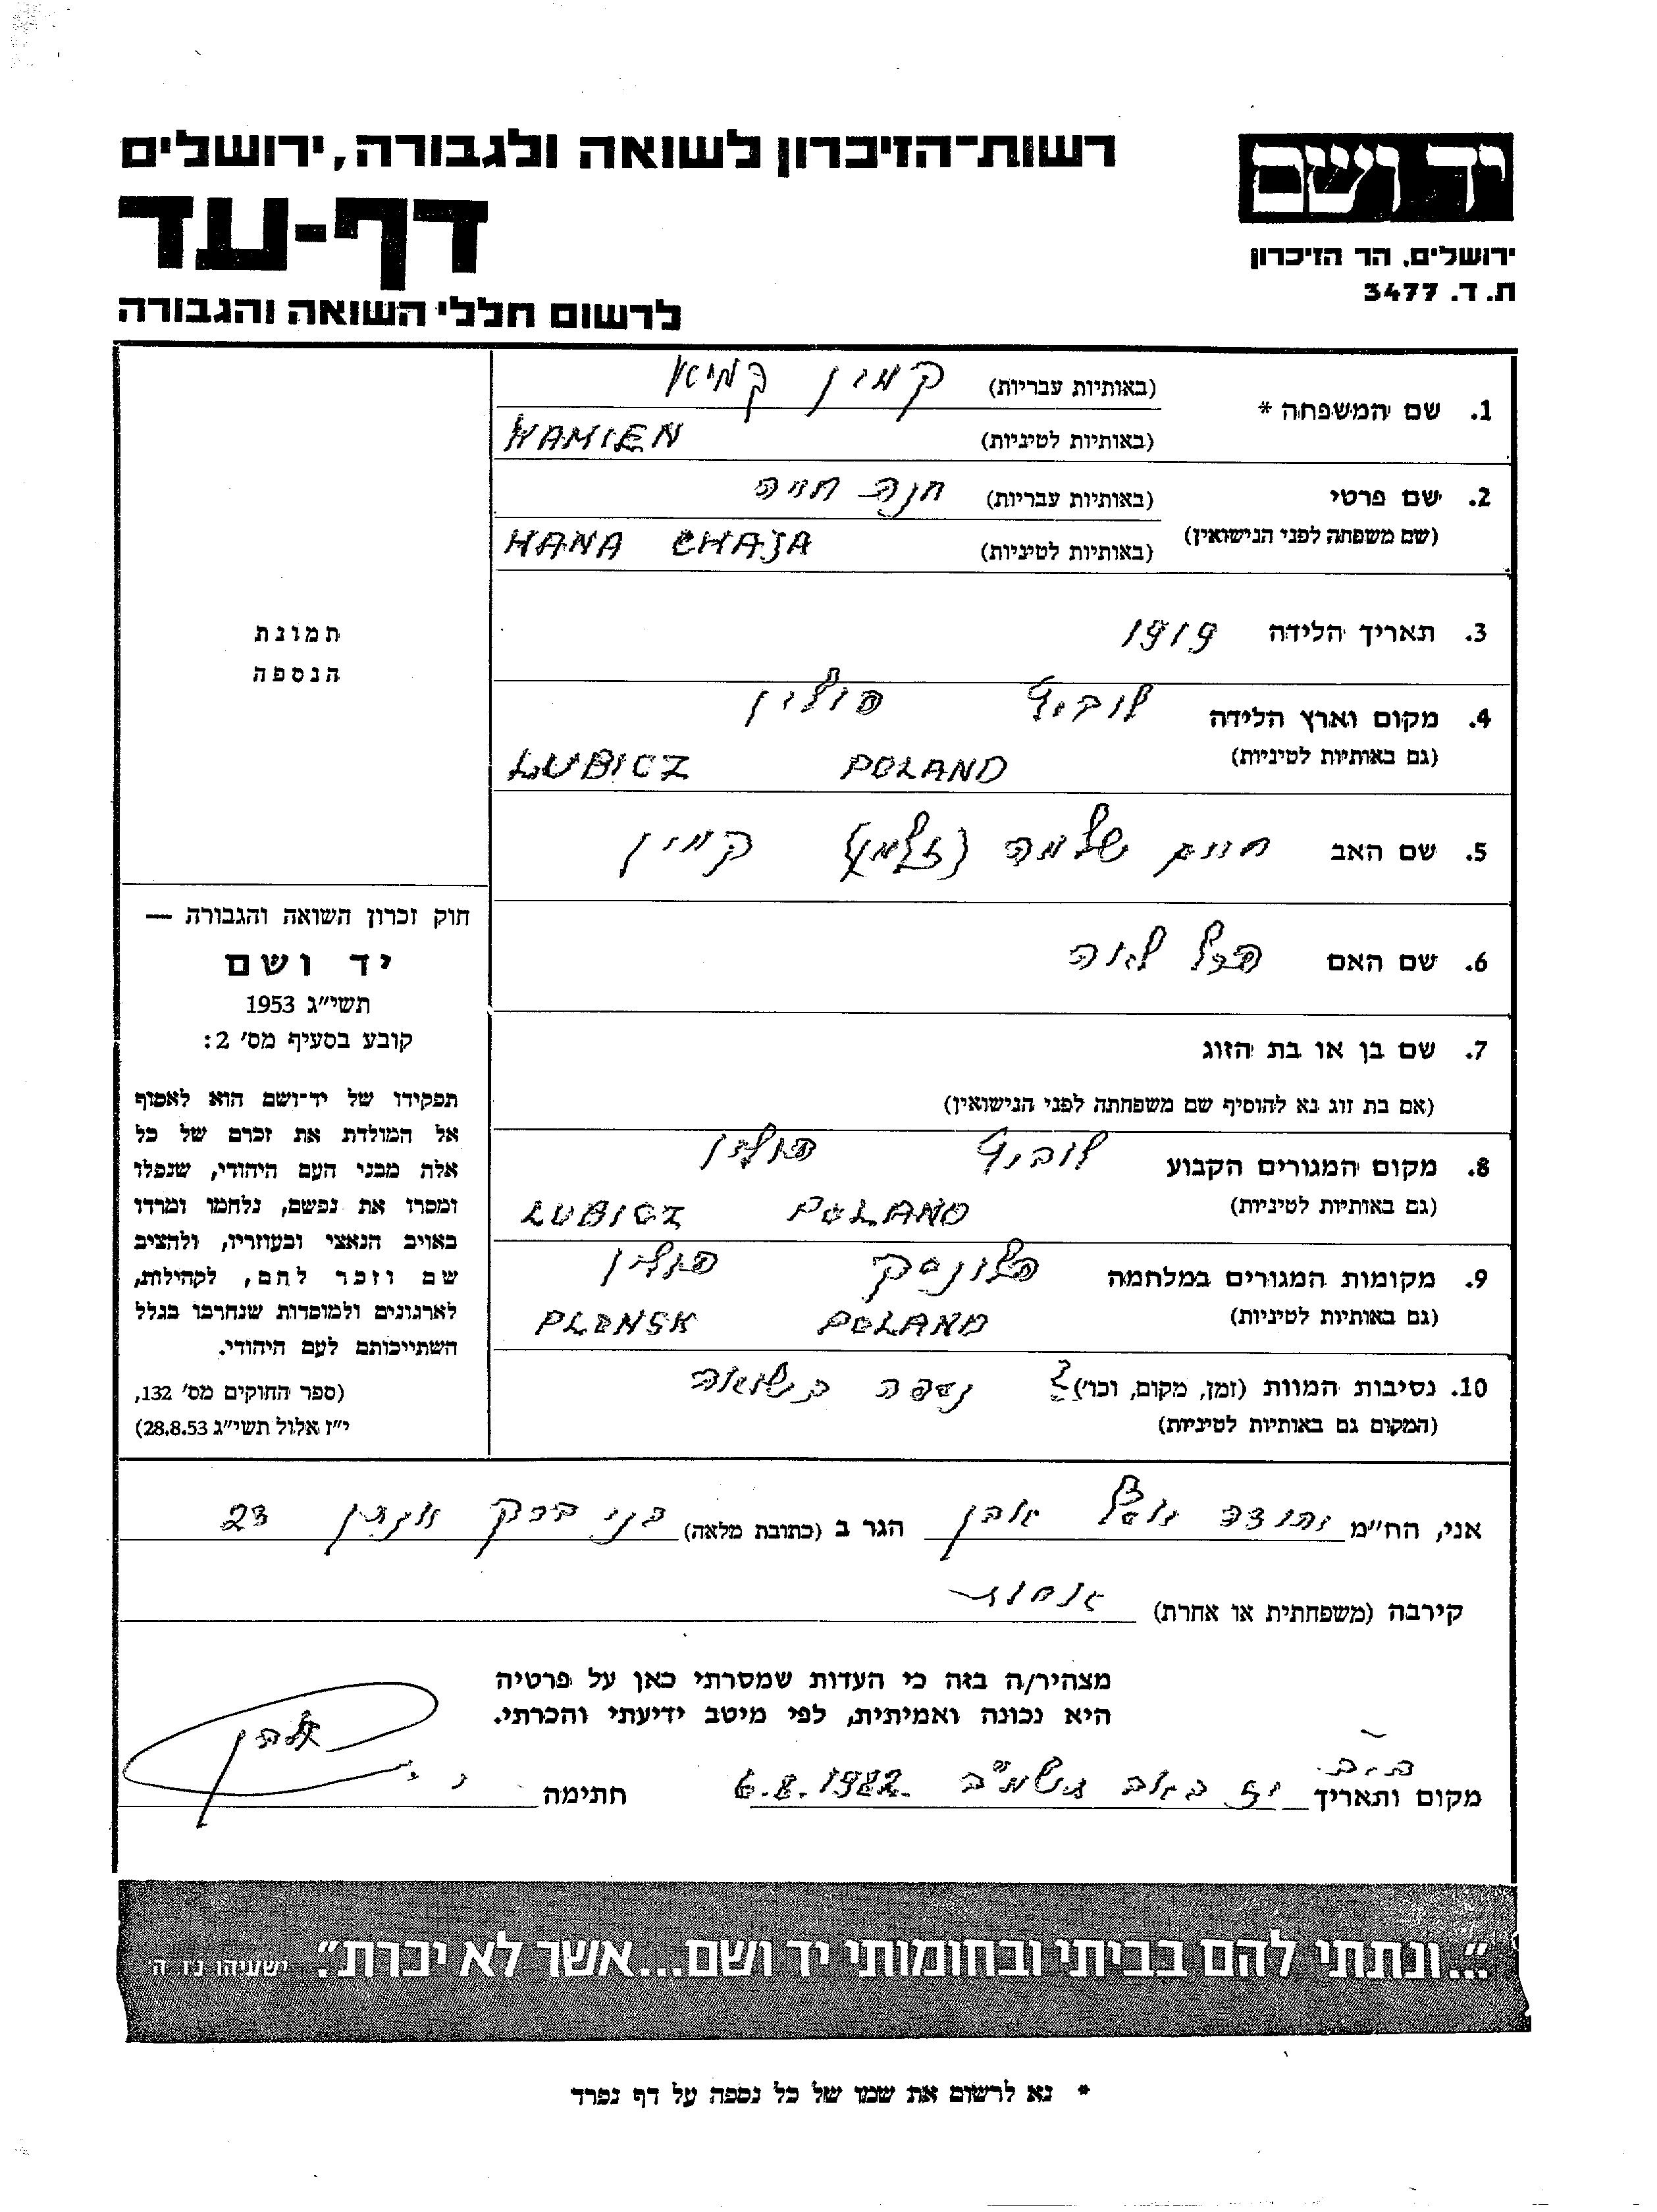 רשות־הזיכרון לשואה ולגבורה, ירושלים
יד ושם
דף-עד
ירושלים, הר הזיכרון
ת. ד. 3477
לרשום חללי השואה והגבורה
1. שם המשפחה * (באותיות עבריות) קמין
(באותיות לטיניות) KAMIEN
2. שם פרטי (באותיות עבריות) חנה חיה
(שם משפחה לפני הנישואין) (באותיות לטיניות) HANA CHAJA
3. תאריך הלידה 1919
4. מקום וארץ הלידה לוביץ פולין
(גם באותיות לטיניות) LUBICZ POLAND
5. שם האב חיים שלמה (זלמן) קמין
6. שם האם לאה
7. שם בן או בת הזוג
(אם בת זוג נא להוסיף שם משפחתה לפני הנישואין)
8. מקום המגורים הקבוע לוביץ פולין
(גם באותיות לטיניות) LUBICZ POLAND
9. מקומות המגורים במלחמה פלונסק פולין
(גם באותיות לטיניות) PLONSK POLAND
10. נסיבות המוות (זמן, מקום, וכו') נספה בשואה
(המקום גם באותיות לטיניות)
תמונת
הנספה
חוק זכרון השואה והגבורה —
יד ושם
תשי״ג 1953
קובע בסעיף מס׳ 2:
תפקידו של יד־ושם הוא לאסוף
אל המולדת את זכרם של כל
אלה מבני העם היהודי, שנפלו
ומסרו את נפשם, נלחמו ומרדו
באויב הנאצי ובעוזריו, ולהציב
שם וזכר להם, לקהילות,
לארגונים ולמוסדות שנחרבו בגלל
השתייכותם לעם היהודי.
(ספר החוקים מס׳ 132,
י״ז אלול תשי״ג 28.8.53)
אני, הח״מ יהודה אבן הגר ב (כתובת מלאה) בני ברק 23
קירבה (משפחתית או אחרת) אחות
מצהיר/ה בזה כי העדות שמסרתי כאן על פרטיה
היא נכונה ואמיתית, לפי מיטב ידיעתי והכרתי.
מקום ותאריך ב"ב יז באב תשמ"ב 6.8.1982 חתימה י. אבן
"...ונתתי להם בביתי ובחומותי יד ושם...אשר לא יכרת". ישעיהו נו, ה׳
* נא לרשום את שמו של כל נספה על דף נפרד